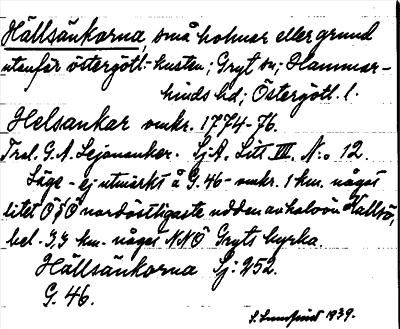 Hällsänkorna, små holmar eller grund
utanför östergötl.-kusten; Gryt sn; Hammar-
kinds hd; Östergötl. l.
Helsankar omkr. 1774-76.
Tral. G. A. Lejonanker. Sj.A. Litt III. N:o 12.
Läge - ej utmärkt å G. 46 - omkr. 1 km. något
litet Ö f Ö nordöstligaste udden av halvön Kallsö,
bel. 3,3 km. något NNÖ Gryts kyrka.
Hällsänkorna Sj: 252.
G. 46.
1939.